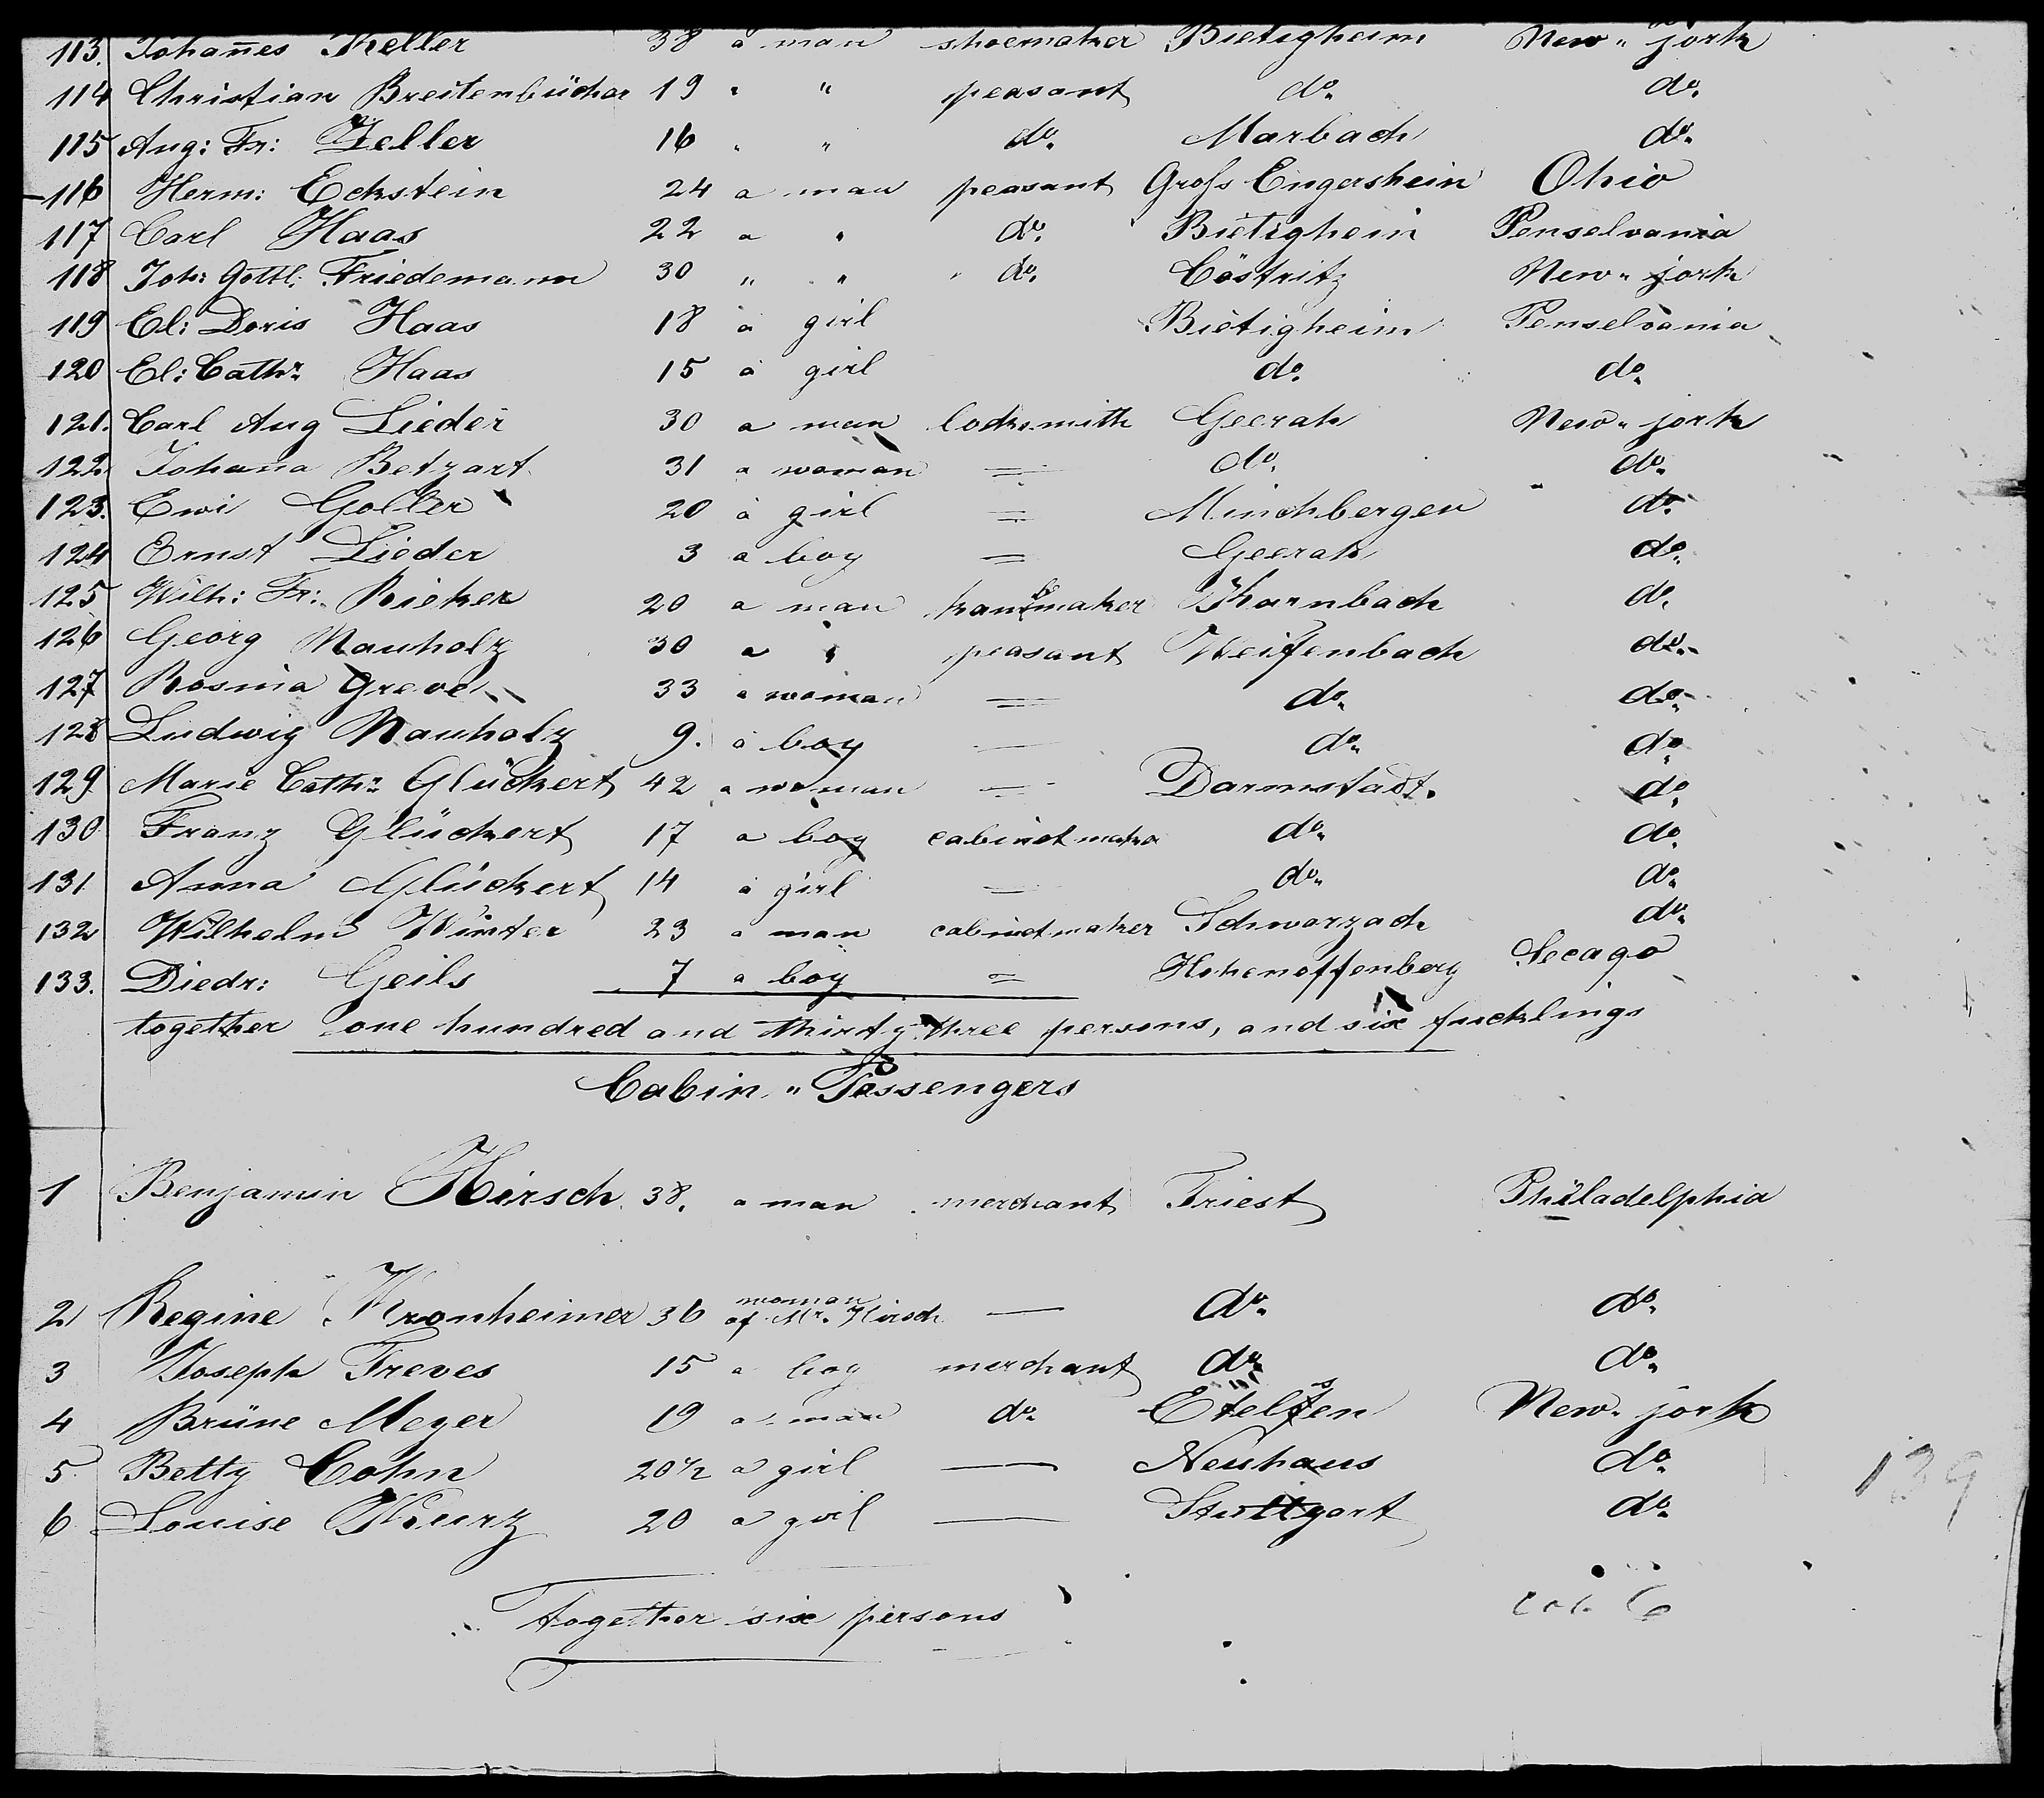 113. Johan̄es Keller 38 a man shoemaker Bietigheim New-jork
114 Christian Breitenbücher 19 " " peasant do. do.
115 Aug: Fr: Zeller 16 " " do. Marbach do.
116 Herm: Eckstein 24 a man peasant Groſs Engershein Ohio
117 Carl Haas 22 a " do. Bietighein Penselvania
118 Joh: Gottl. Friedemann 30 " " " do. Cöstritz New-jork
119 El: Doris Haas 18 a girl Bietigheim Penselvania
120 El: Cathr. Haas 15 a girl do. do.
121. Carl Aug Lieder 30 a man locksmith Geerah New-jork
122. Johan̄a Betzart 31 a woman = do. do.
123. Ewi Goller 20 a girl = Minchbergen do.
124 Ernst Lieder 3 a boy = Geerah do.
125 Wilh: Fr: Rieker 20 a man maker do.
126 Georg Mauholz 30 a " peasant Weifenbach do.
127 Rosina Greve 33 a woman = do. do.
128 Ludwig Mauholz 9. a boy — do. do.
129 Marie Cathr. Glückert 42 a woman — Darmstadt. do.
130 Franz Glückert 17 a boy cabinetmaker do. do.
131. Anna Glückert 14 a girl — do. do.
132 Wilhelm Winter 23 a man cabinetmaker Schwarzach do.
133. Diedr: Geils 7 a boy = Hohenoffenberg Secago
together one hundred and thirty three persons, and six sucklings
Cabin-Passengers
1 Benjamin Hirsch. 38. a man merchant Triest Philadelphia
2 Regine Kronheimer 36 woman of Mr. Hirsch — do. do.
3 Joseph Treves 15 a boy merchant do. do.
4 Brüne Meyer 19 a man do. Etelsen New-jork
5 Betty Cohn 20½ a girl — Neuhaus do.
6 Louise Kurz 20 a girl — Stuttgart do.
139
together six persons